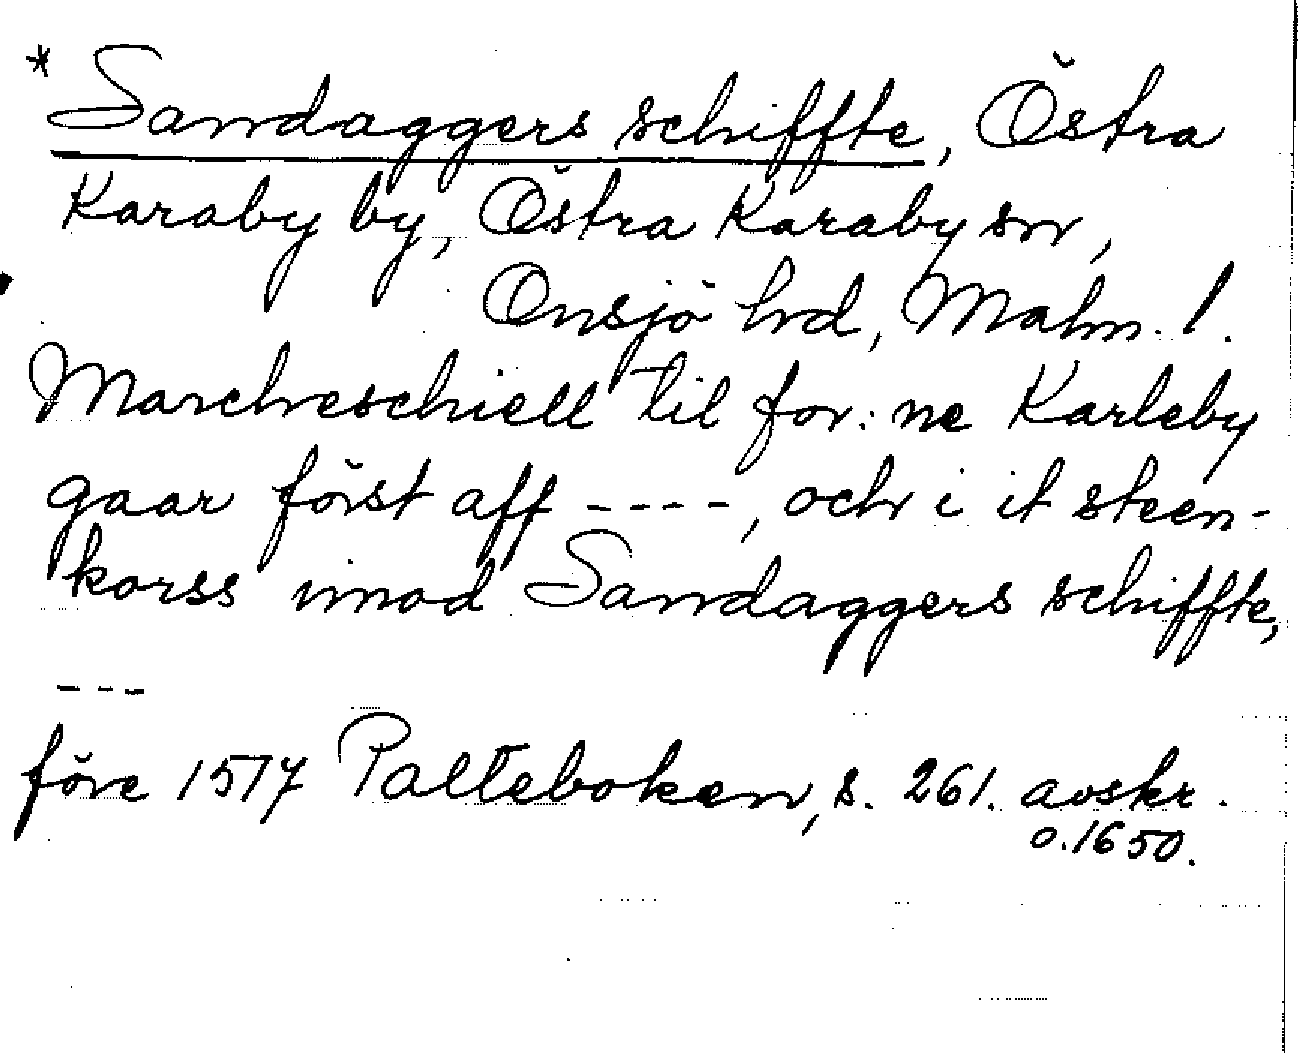 * Sandaggers schiffte, Östra
Karaby by, Östra Karaby sn,
Onsjö hd, Malm. l.
Marcheschiell til for:ne Karleby
gaar först aff ----, och i it steen-
korss imod Sandaggers schiffte,
---
före 1517 Palteboken, s. 261. avskr.
o. 1650.